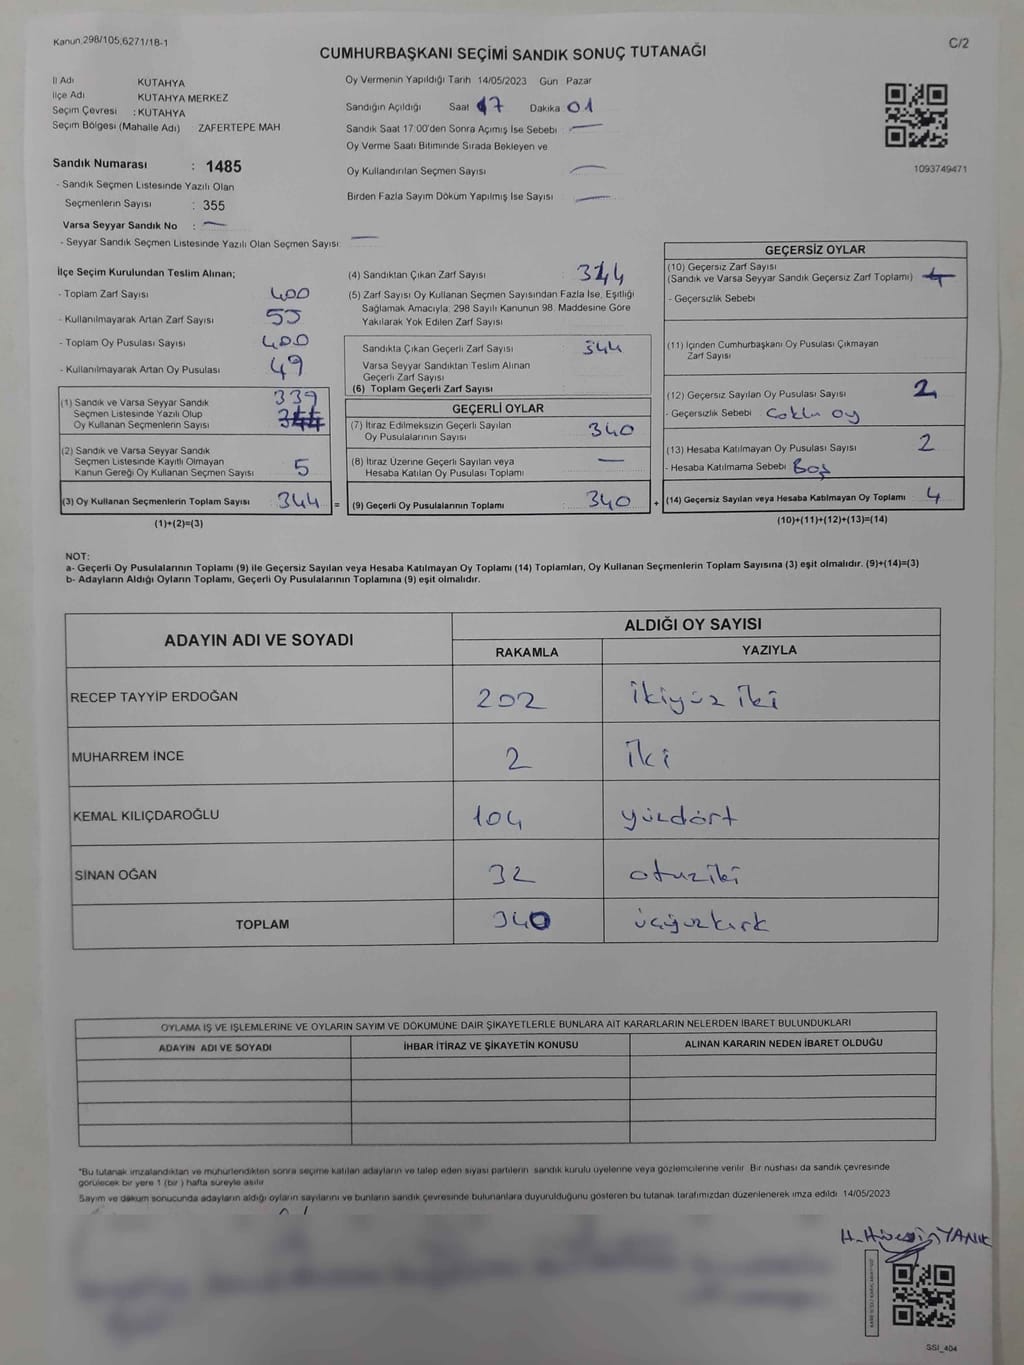 Kanun 298/105,6271/18-1
C/2
CUMHURBAŞKANI SEÇİMİ SANDIK SONUÇ TUTANAĞI
İl Adı KÜTAHYA
İlçe Adı KÜTAHYA MERKEZ
Seçim Çevresi : KÜTAHYA
Seçim Bölgesi (Mahalle Adı) ZAFERTEPE MAH
Oy Vermenin Yapıldığı Tarih 14/05/2023 Gün Pazar
Sandığın Açıldığı Saat 17 Dakika 01
Sandık Saat 17:00'den Sonra Açılmış İse Sebebi —
Oy Verme Saati Bitiminde Sırada Bekleyen ve
Oy Kullandırılan Seçmen Sayısı —
Birden Fazla Sayım Döküm Yapılmış İse Sayısı —
1093749471
Sandık Numarası : 1485
- Sandık Seçmen Listesinde Yazılı Olan
Seçmenlerin Sayısı : 355
Varsa Seyyar Sandık No : —
- Seyyar Sandık Seçmen Listesinde Yazılı Olan Seçmen Sayısı: —
İlçe Seçim Kurulundan Teslim Alınan;
- Toplam Zarf Sayısı 400
- Kullanılmayarak Artan Zarf Sayısı 55
- Toplam Oy Pusulası Sayısı 400
- Kullanılmayarak Artan Oy Pusulası 49
(1) Sandık ve Varsa Seyyar Sandık 339
Seçmen Listesinde Yazılı Olup 344
Oy Kullanan Seçmenlerin Sayısı
(2) Sandık ve Varsa Seyyar Sandık
Seçmen Listesinde Kayıtlı Olmayan
Kanun Gereği Oy Kullanan Seçmen Sayısı 5
(3) Oy Kullanan Seçmenlerin Toplam Sayısı 344 =
(1)+(2)=(3)
(4) Sandıktan Çıkan Zarf Sayısı : 344
(5) Zarf Sayısı Oy Kullanan Seçmen Sayısından Fazla İse, Eşitliği
Sağlamak Amacıyla, 298 Sayılı Kanunun 98. Maddesine Göre
Yakılarak Yok Edilen Zarf Sayısı
Sandıkta Çıkan Geçerli Zarf Sayısı : 344
Varsa Seyyar Sandıktan Teslim Alınan
Geçerli Zarf Sayısı
(6) Toplam Geçerli Zarf Sayısı
GEÇERLİ OYLAR
(7) İtiraz Edilmeksizin Geçerli Sayılan
Oy Pusulalarının Sayısı 340
(8) İtiraz Üzerine Geçerli Sayılan veya
Hesaba Katılan Oy Pusulası Toplamı —
(9) Geçerli Oy Pusulalarının Toplamı 340 +
GEÇERSİZ OYLAR
(10) Geçersiz Zarf Sayısı
(Sandık ve Varsa Seyyar Sandık Geçersiz Zarf Toplamı) 4
- Geçersizlik Sebebi
(11) İçinden Cumhurbaşkanı Oy Pusulası Çıkmayan
Zarf Sayısı
(12) Geçersiz Sayılan Oy Pusulası Sayısı 2
- Geçersizlik Sebebi Çoklu Oy
(13) Hesaba Katılmayan Oy Pusulası Sayısı 2
- Hesaba Katılmama Sebebi Boş
(14) Geçersiz Sayılan veya Hesaba Katılmayan Oy Toplamı 4
(10)+(11)+(12)+(13)=(14)
NOT:
a- Geçerli Oy Pusulalarının Toplamı (9) ile Geçersiz Sayılan veya Hesaba Katılmayan Oy Toplamı (14) Toplamları, Oy Kullanan Seçmenlerin Toplam Sayısına (3) eşit olmalıdır. (9)+(14)=(3)
b- Adayların Aldığı Oyların Toplamı, Geçerli Oy Pusulalarının Toplamına (9) eşit olmalıdır.
ADAYIN ADI VE SOYADI ALDIĞI OY SAYISI
RAKAMLA YAZIYLA
RECEP TAYYİP ERDOĞAN 202 ikiyüz iki
MUHARREM İNCE 2 İki
KEMAL KILIÇDAROĞLU 104 yüzdört
SİNAN OĞAN 32 otuziki
TOPLAM 340 üçyüzkırk
OYLAMA İŞ VE İŞLEMLERİNE VE OYLARIN SAYIM VE DÖKÜMÜNE DAİR ŞİKAYETLERLE BUNLARA AİT KARARLARIN NELERDEN İBARET BULUNDUKLARI
ADAYIN ADI VE SOYADI İHBAR İTİRAZ VE ŞİKAYETİN KONUSU ALINAN KARARIN NEDEN İBARET OLDUĞU
*Bu tutanak imzalandıktan ve mühürlendikten sonra seçime katılan adayların ve talep eden siyasi partilerin sandık kurulu üyelerine veya gözlemcilerine verilir. Bir nüshası da sandık çevresinde
görülecek bir yere 1 (bir) hafta süreyle asılır
Sayım ve döküm sonucunda adayların aldığı oyların sayılarını ve bunların sandık çevresinde bulunanlara duyurulduğunu gösteren bu tutanak tarafımızdan düzenlenerek imza edildi 14/05/2023
H. Hüseyin YANIK
SSI_404